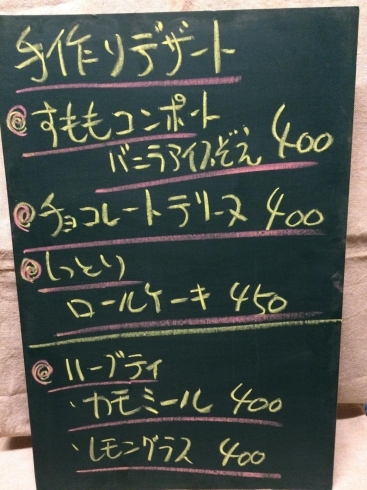 手作りデザート
すももコンポート
バニラアイスぞえ 400
チョコレートテリーヌ 400
しっとり
ロールケーキ 450
ハーブティ
・カモミール 400
・レモングラス 400